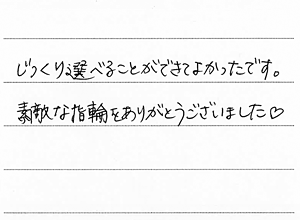 じっくり選べることができてよかったです。
素敵な指輪をありがとうございました♡